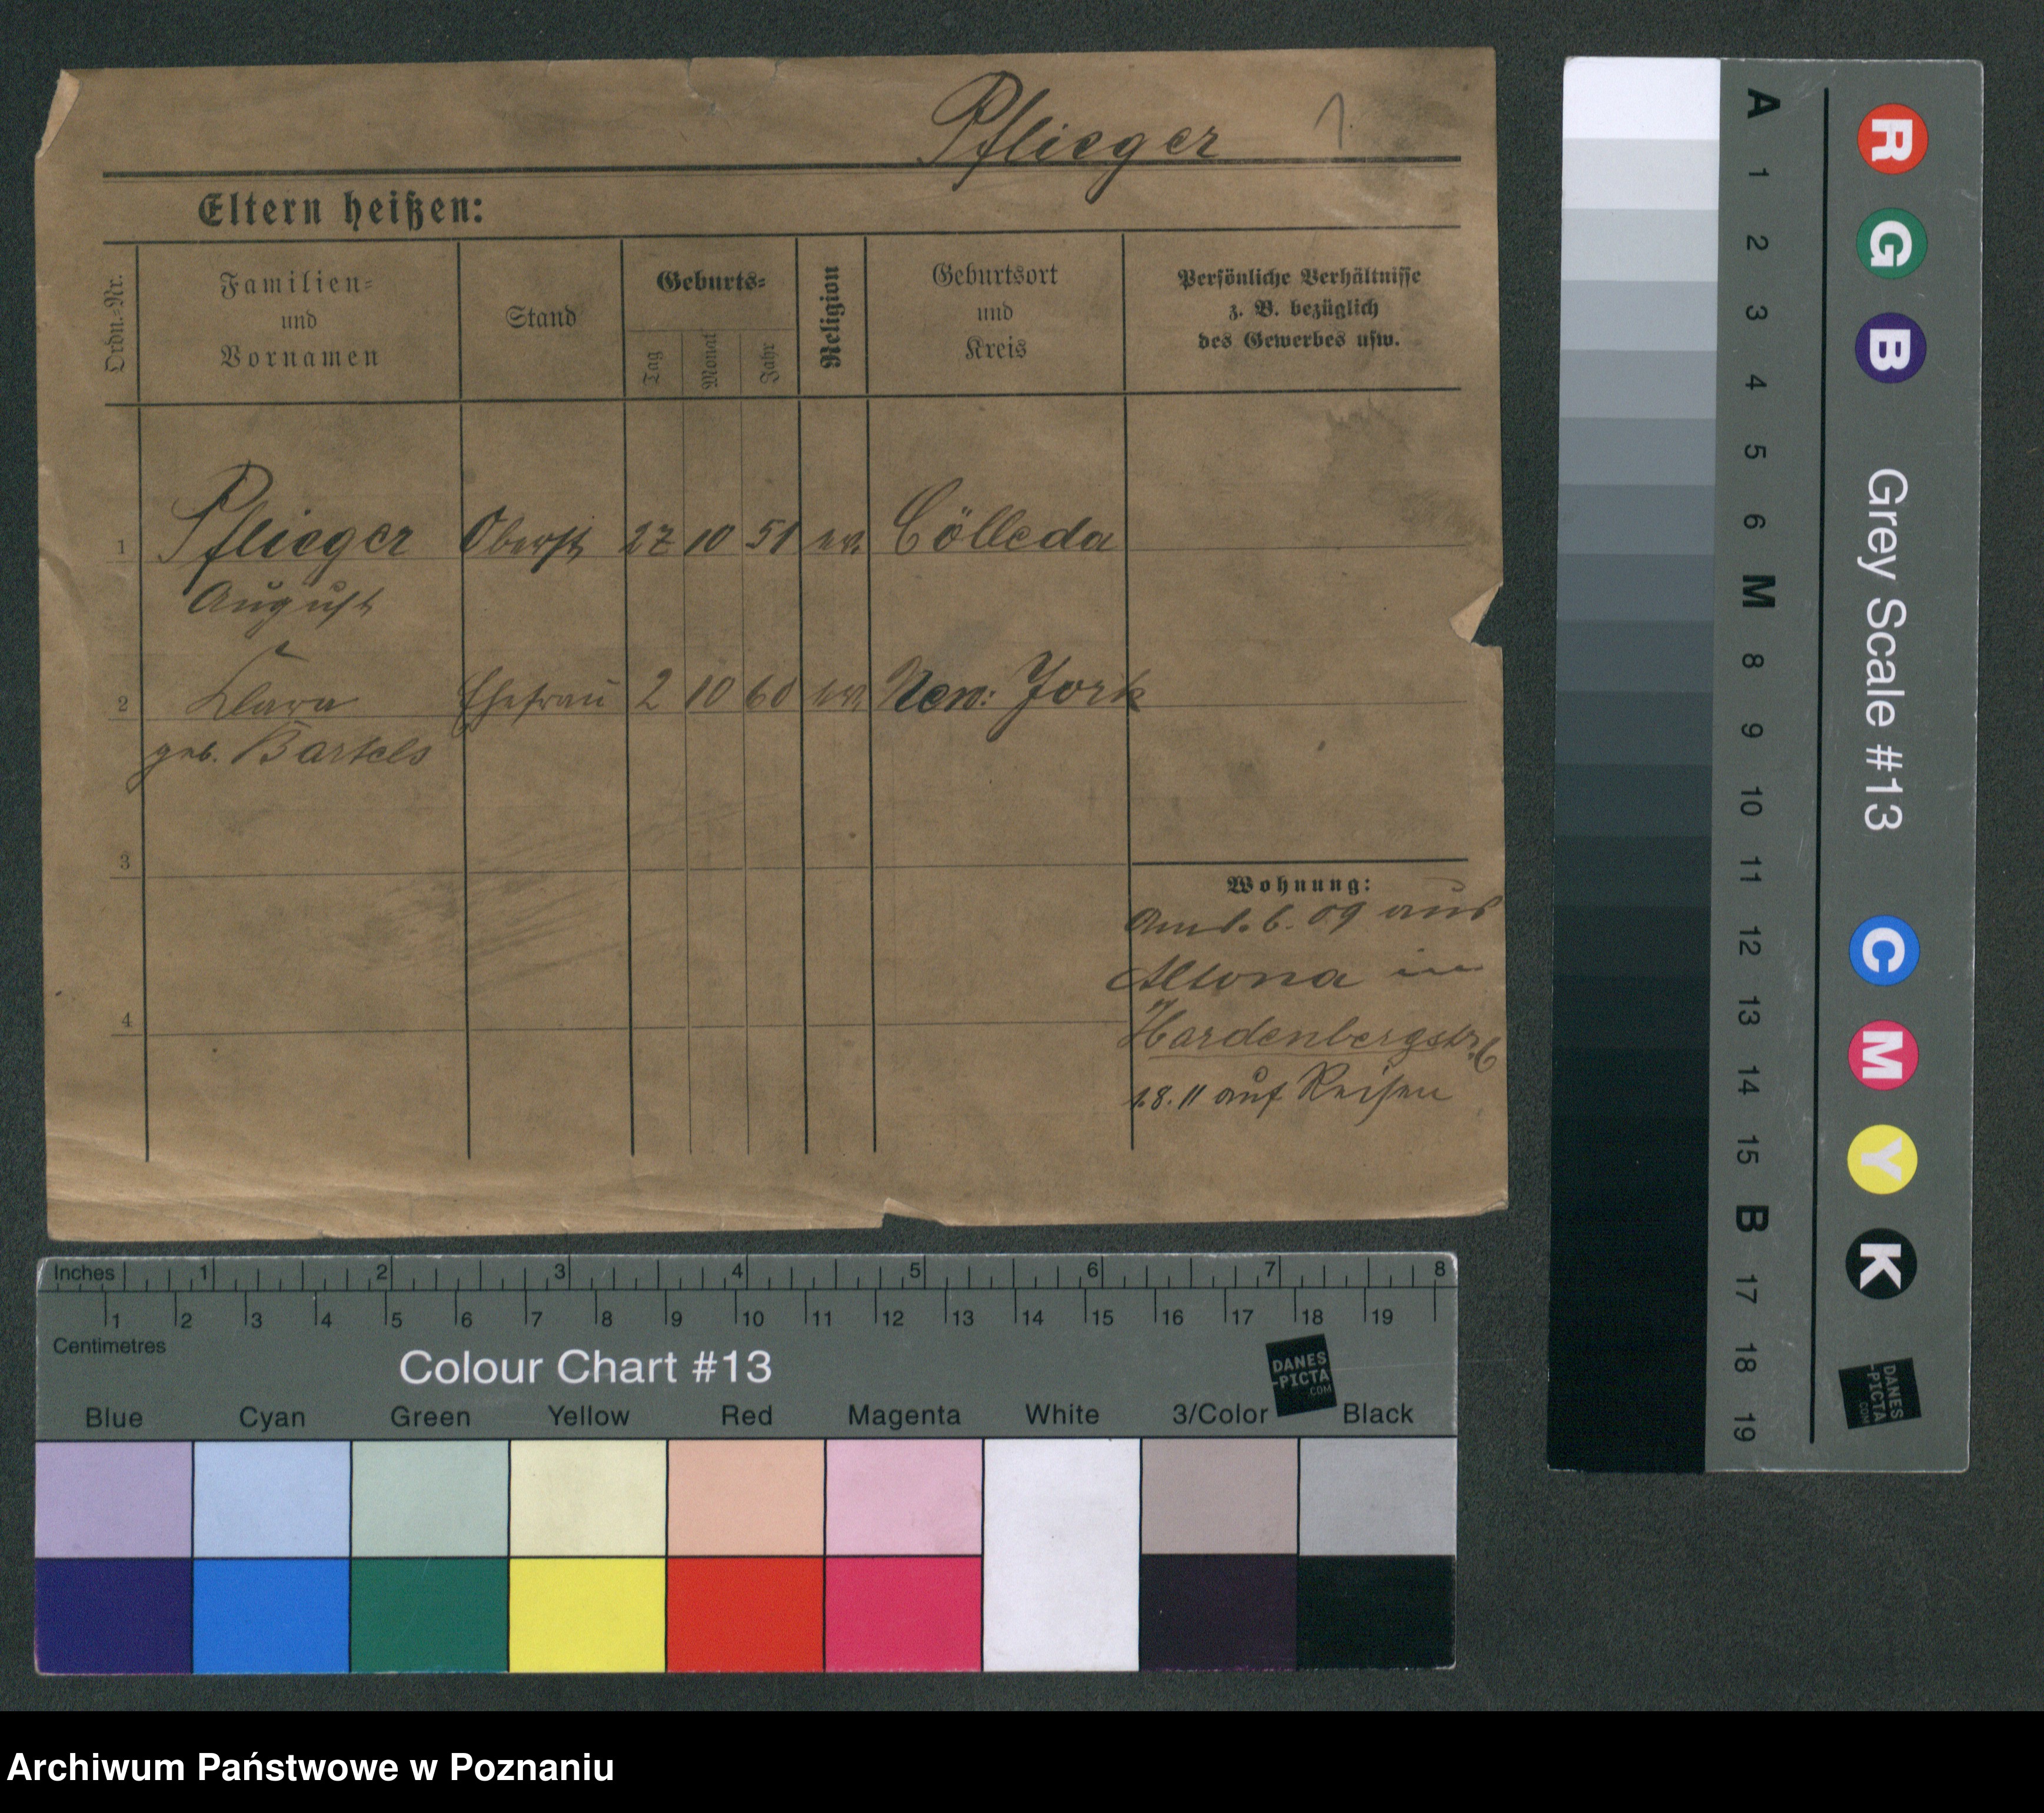 Pflieger 1.
Eltern heißen:
Ordn.-Nr.
Familien-
und
Vornamen
Stand
Geburts-
Tag
Monat
Jahr
Religion
Geburtsort
und
Kreis
Persönliche Verhältnisse
z. B. bezüglich
des Gewerbes usw.
1 Pflieger Oberst 27 10 51 ev. Cölleda
August
2 Klara Ehefrau 2 10 60 ev. New: York
geb. Bartels
3
4
Wohnung:
Am 1. 6. 09 aus
Altona in
Hardenbergstr. 6
1.8.11 auf Reisen
A 1 2 3 4 5 6 M 8 9 10 11 12 13 14 15 B 17 18 19
R G B
Grey Scale #13
C M Y K
DANES
-PICTA
.COM
Inches 1 2 3 4 5 6 7 8
1 2 3 4 5 6 7 8 9 10 11 12 13 14 15 16 17 18 19
Centimetres
Colour Chart #13
DANES
-PICTA
.COM
Blue Cyan Green Yellow Red Magenta White 3/Color Black
Archiwum Państwowe w Poznaniu